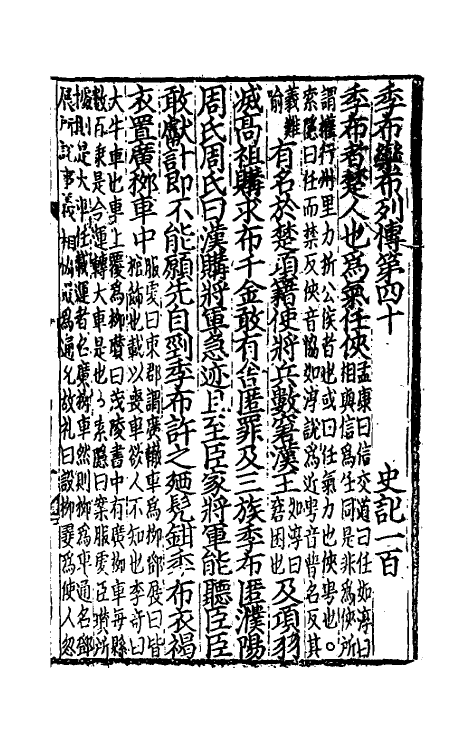 季布欒布列傳第四十　史記一百
季布者楚人也爲氣任俠孟康曰信交道曰任如淳曰相與信爲任同是非爲俠所
謂權行州里力折公侯者也或曰任氣力也俠甹也。索隱曰任而禁反俠音協如淳說爲近甹音普名反其
義難喻有名於楚項籍使將兵數窘漢王如淳曰窘困也及項羽
滅高祖購求布千金敢有舍匿罪及三族季布匿濮陽
周氏周氏曰漢購將軍急迹且至臣家將軍能聽臣臣
敢獻計即不能願先自剄季布許之廼髡鉗季布衣褐
衣置廣柳車中服虔曰東郡謂廣轍車爲柳鄧展曰皆棺飾也載以喪車欲人不知也李奇曰
大牛車也車上覆爲柳瓚曰茂陵書中有廣柳車每縣數百乘是今運轉大車是也索隱曰案服虔臣瓚所
據則是大車任載運者名廣柳車然則柳爲車通名鄧展所說事義相協最爲通允故禮曰設柳翣爲使人忽